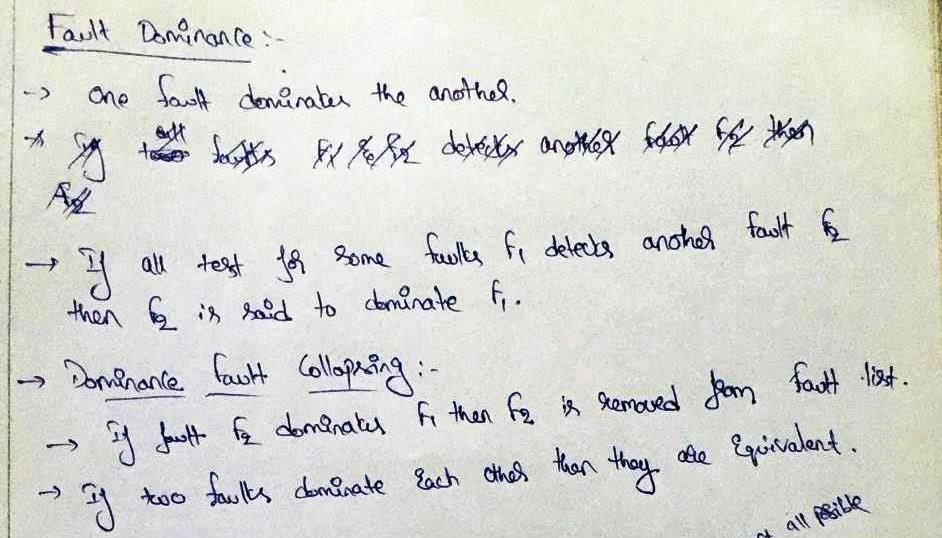 Fault Dominance :-
→ One fault dominates the another.
→ If all test for some faults F1 detects another fault F2
then F2 is said to dominate F1.
→ Dominance fault Collapsing :-
→ If fault F2 dominates F1 then F2 is removed from fault list.
→ If two faults dominate Each other then they are Equivalent.
all posible